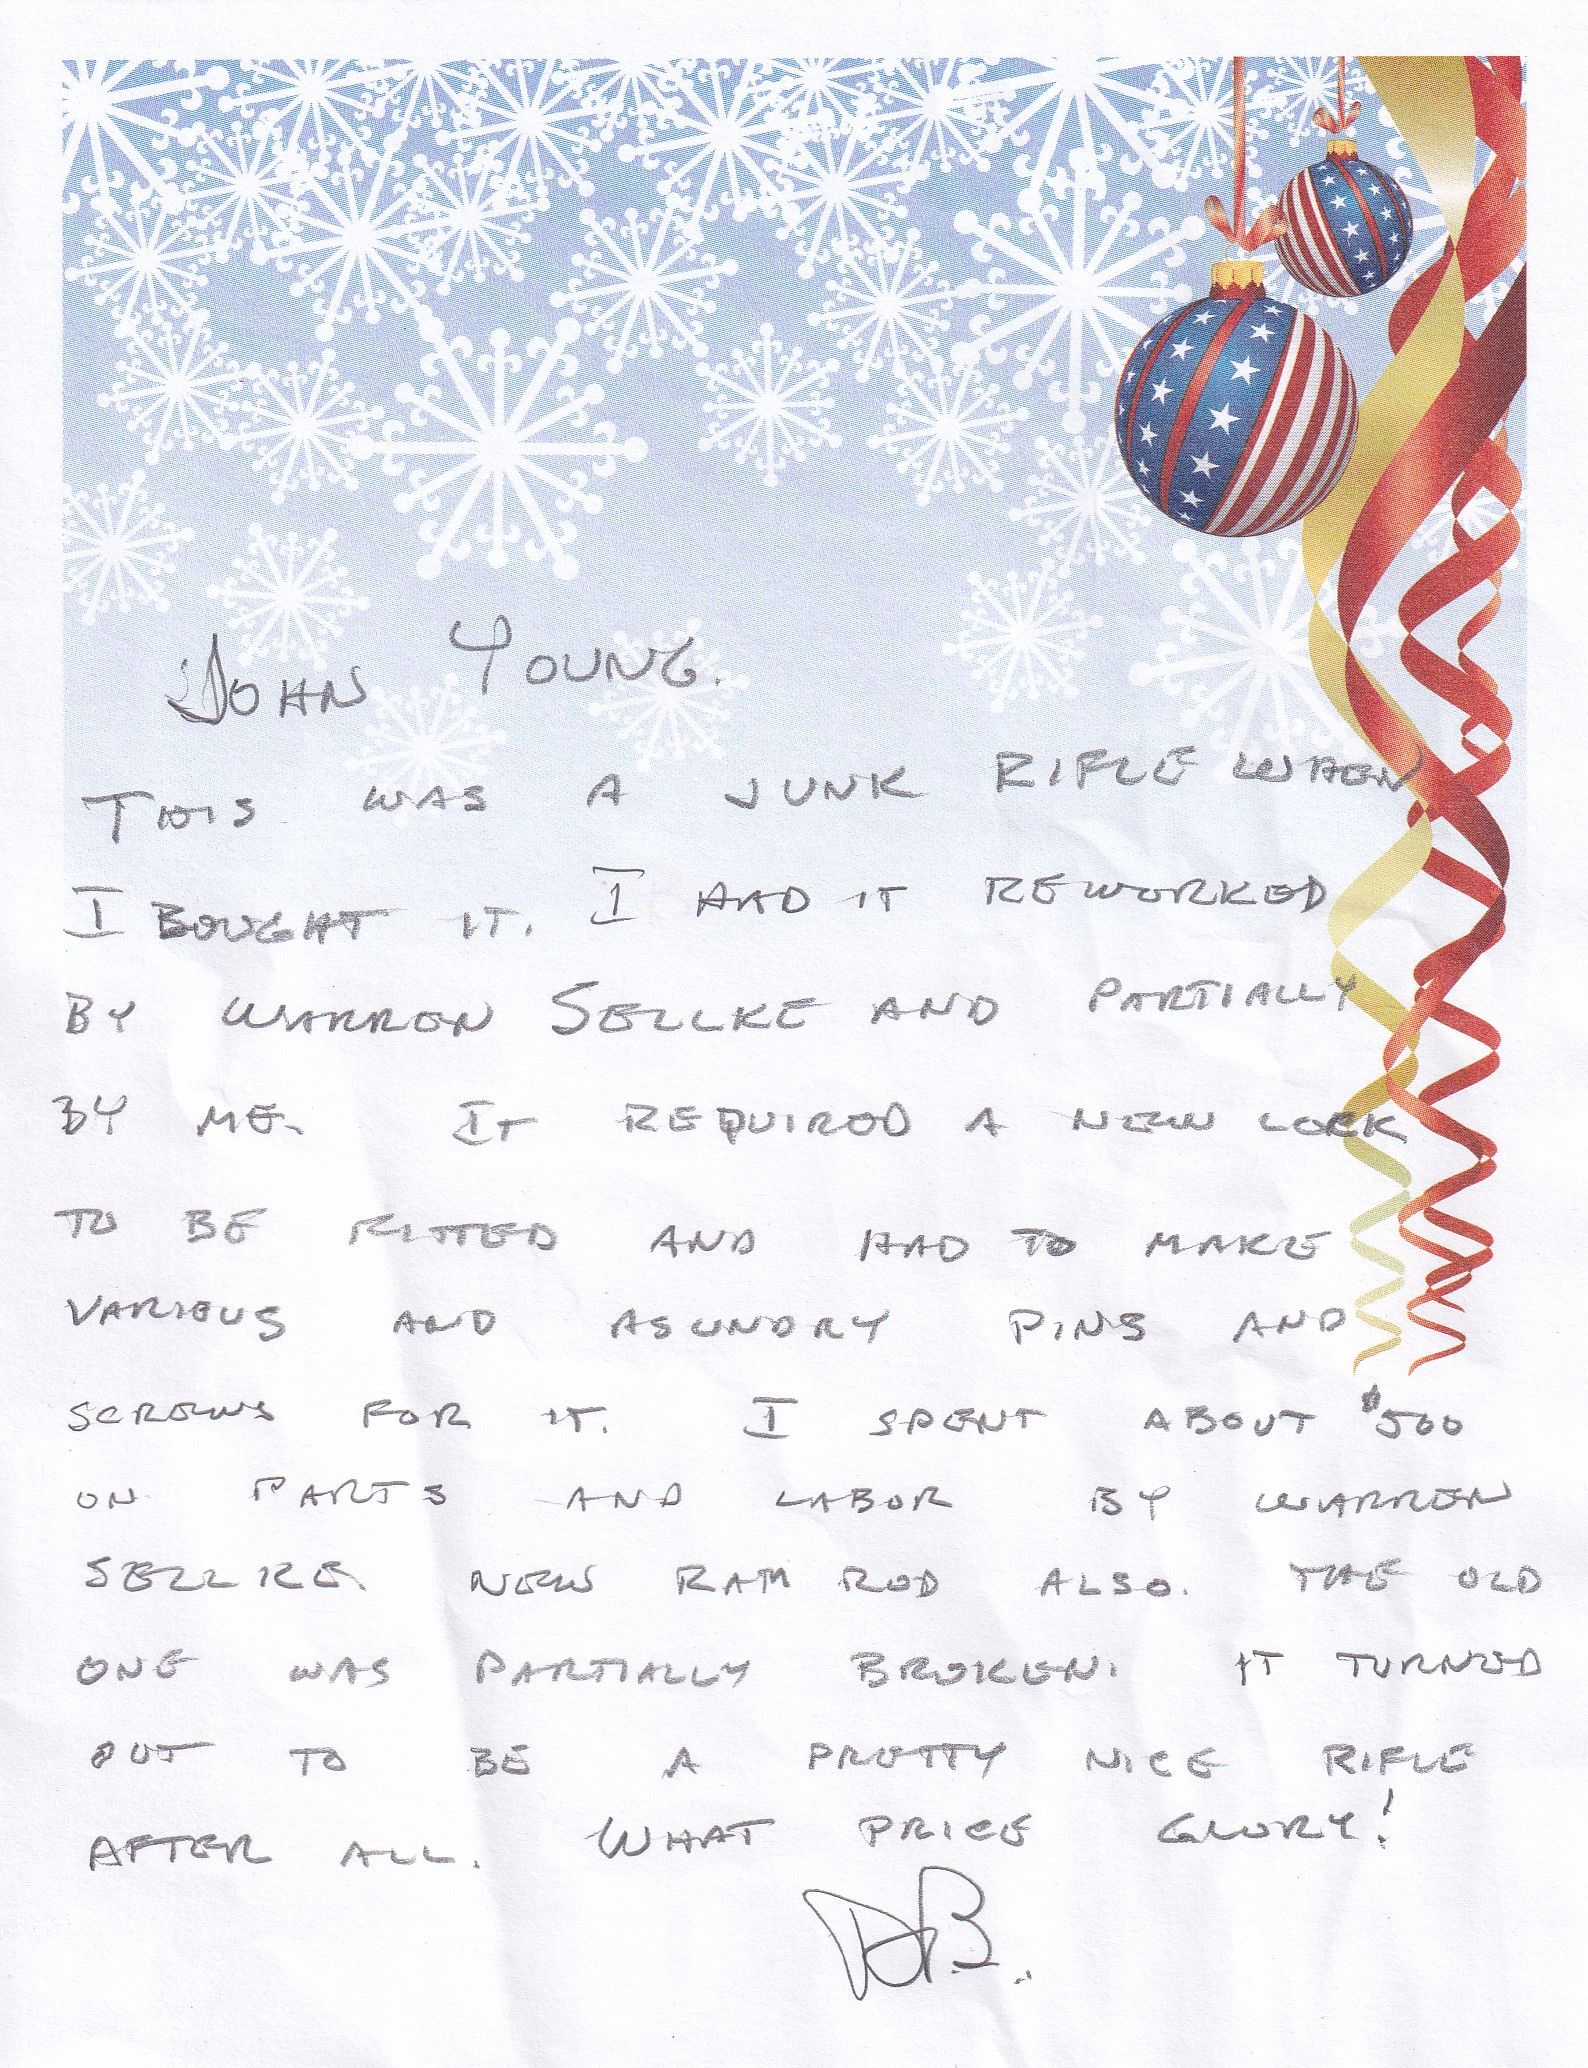 JOHN YOUNG.
THIS WAS A JUNK RIFLE WHEN
I BOUGHT IT. I HAD IT REWORKED
BY WARREN SELLKE AND PARTIALLY
BY ME. IT REQUIRED A NEW LOCK
TO BE FITTED AND HAD TO MAKE
VARIOUS AND ASUNDRY PINS AND
SCREWS FOR IT. I SPENT ABOUT $500
ON PARTS AND LABOR BY WARREN
SELLKE. NEW RAM ROD ALSO. THE OLD
ONE WAS PARTIALLY BROKEN. IT TURNED
OUT TO BE A PRETTY NICE RIFLE
AFTER ALL. WHAT PRICE GLORY!
DB.